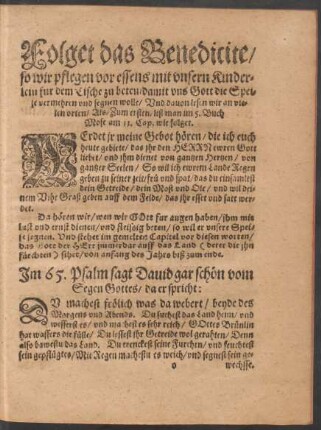 Folget das Benedicite/
so wir pflegen vor essens mit vnsern Kinder-
lein fur dem Tische zu beten/damit vns Gott die Spei-
se vermehren vnd segnen wolle/ Vnd dauon lesen wir an vie-
len orten/ Als/ Zum ersten/ liß man im 5. Buch
Mose am 11. Cap. wie folget.
WErdet jr meine Gebot hören/ die ich euch
heute gebiete/ das jhr den HERRN ewren Gott
liebet/ vnd jhm dienet von gantzen Hertzen/ von
gantzer Seelen/ So wil ich ewrem Lande Regen
geben zu seiner zeit/ das du einsamlest
dein Getreide/ dein Most vnd Ole/ vnd wil dei-
nem Vihe Graß geben auff dem Felde/ das jhr esset vnd satt wer-
det.
Da hören wir/ wan wir GOtt fur augen haben/ jhm mit
lust vnd ernst dienen/ vnd fleissig beten/ so wil er vnsere Spei-
se segnen. Vnd stehet im gemelten Capitel vor diesen worten/
das Gott der HErr jmmerdar auff das Land (derer die jhn
fürchten) sihet/ von anfang des Jahres biß zum ende.
Im 65. Psalm sagt Dauid gar schön vom
Segen Gottes/ da er spricht:
DV machest frölich was da webert/ beyde des
Morgens vnd Abends. Du suchest das Land heim/ vnd
wesserst es/ vnd machest es sehr reich/ GOttes Brünlin
hat wassers die fülle/ Du lessest jhr Getreide wol gerahten/ Denn
also bawestu das Land. Du trenckest seine Furchen/ vnd feuchtest
sein gepflügtes/ Mit Regen machestu es weich/ vnd segnest sein ge-
o wechsse.